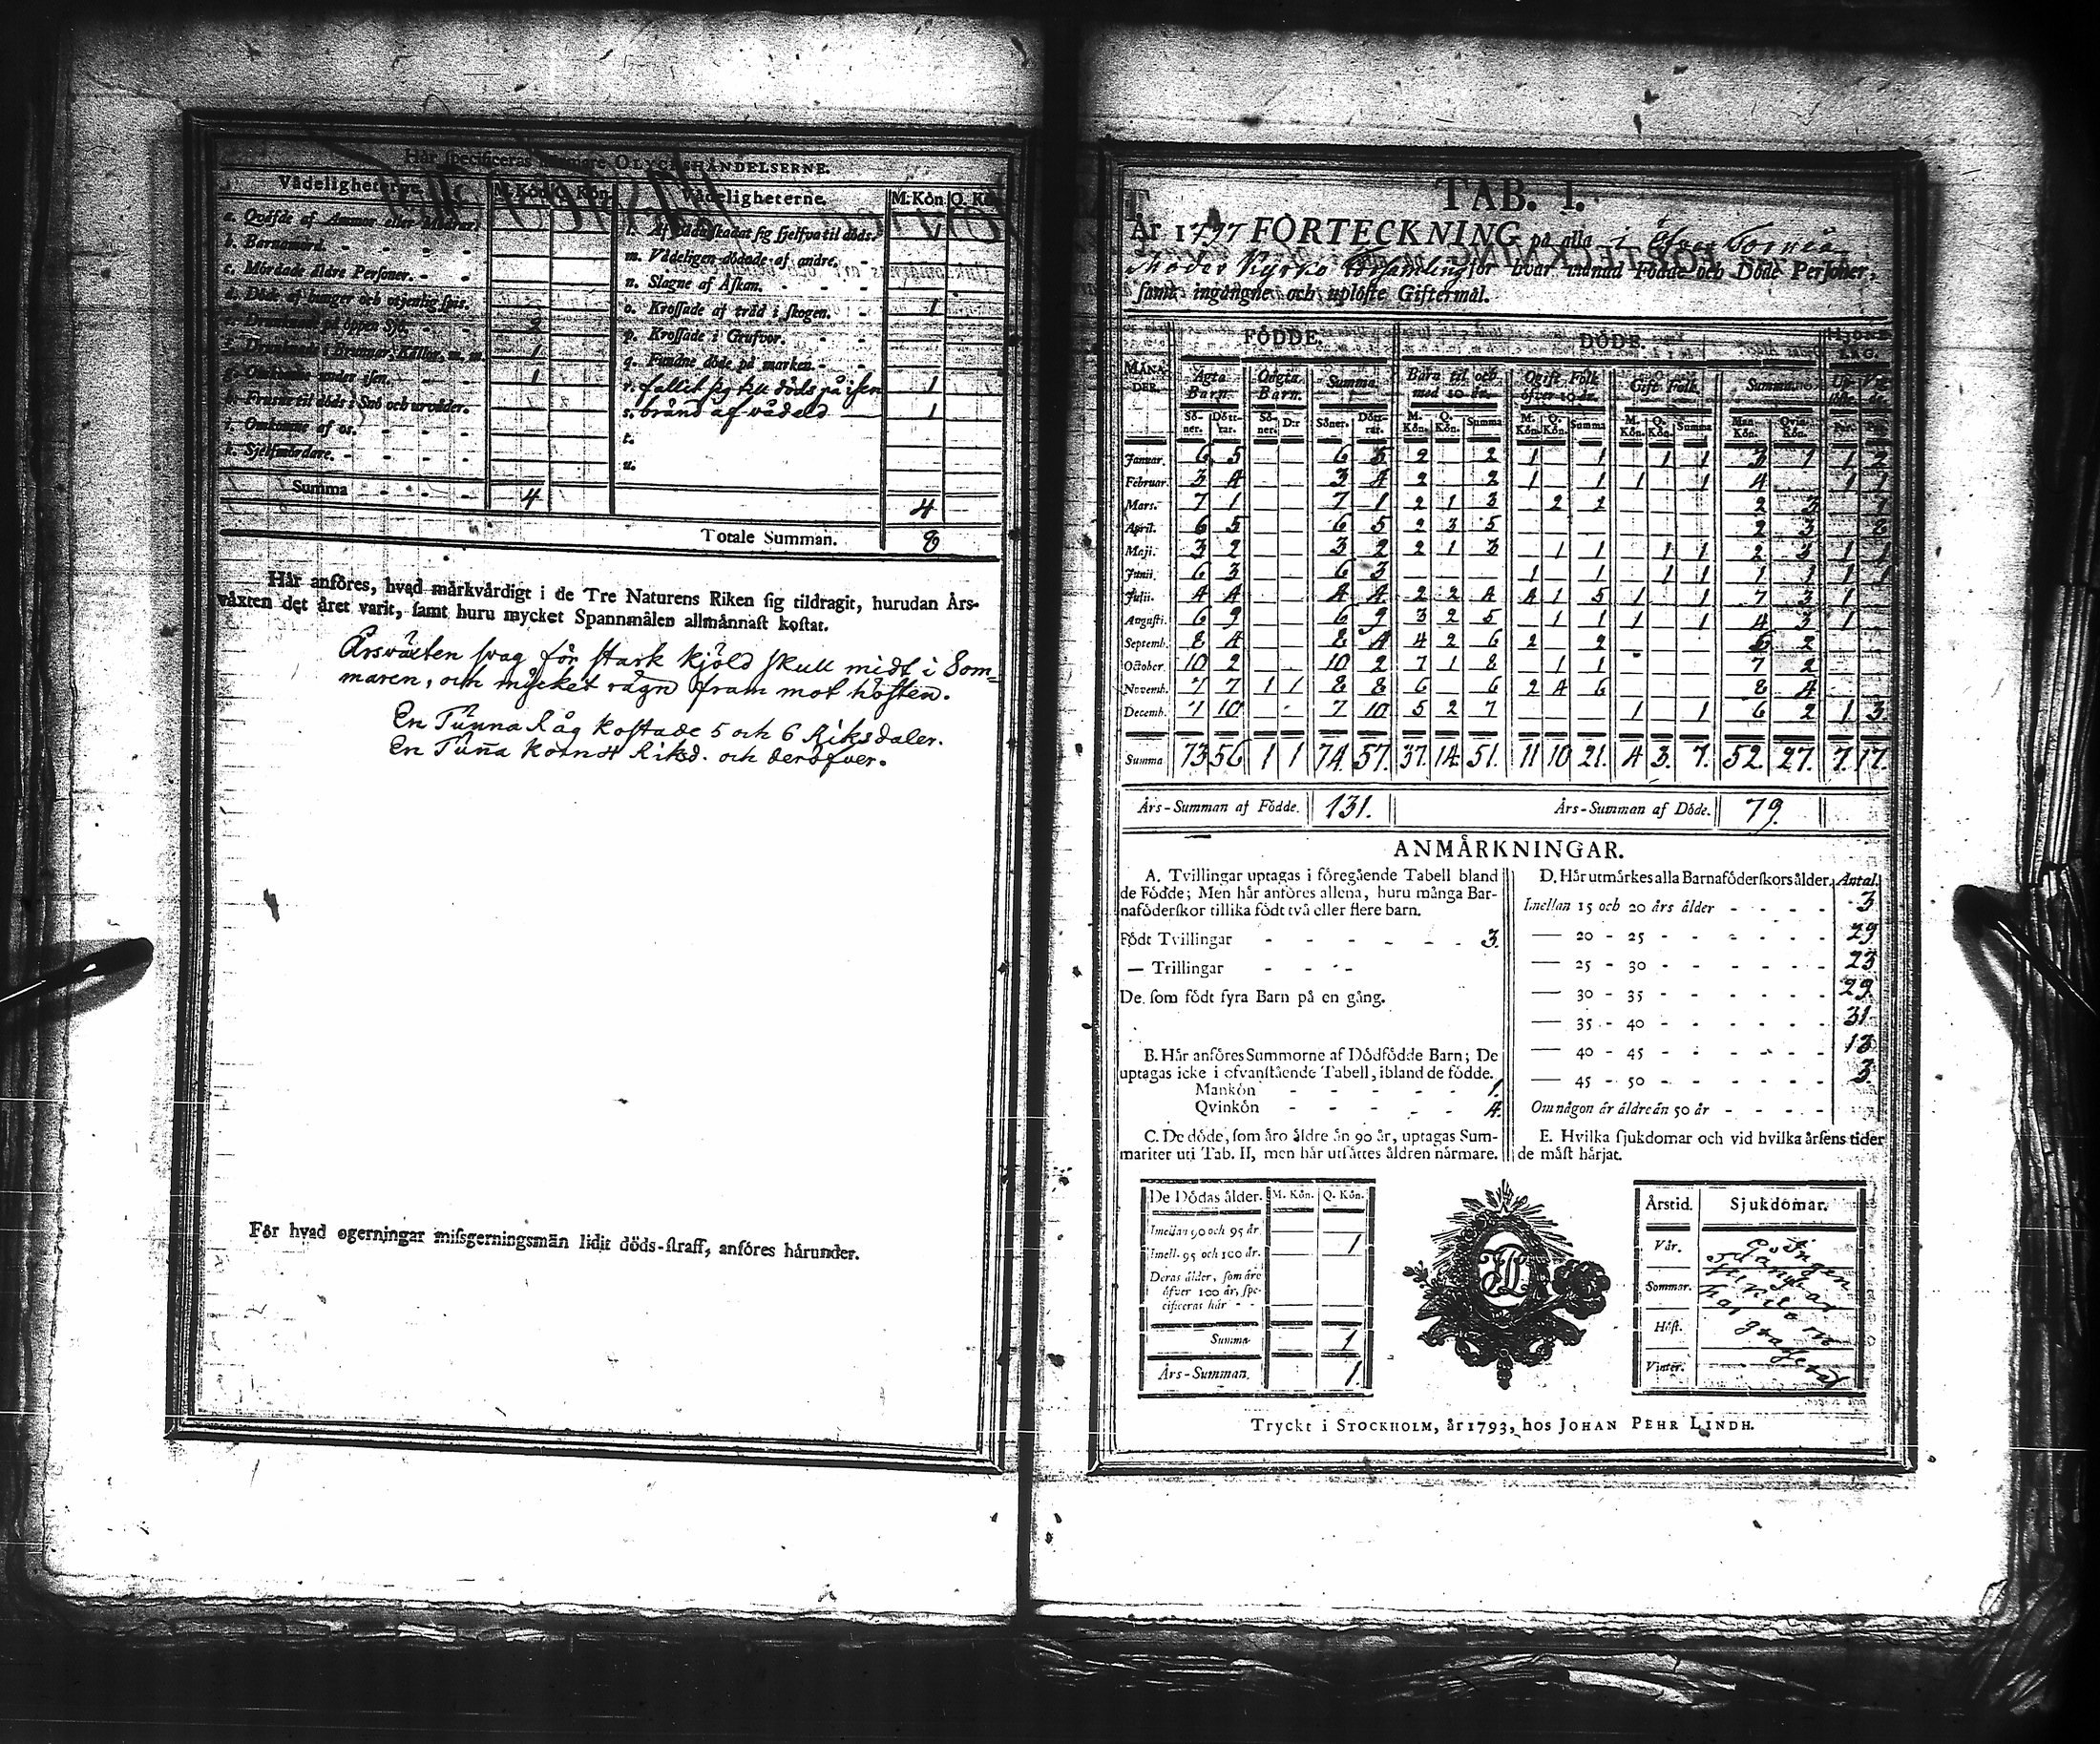 Hår specificeras OLYCKSHÅNDELSERNE.
Vådeligheterne. M. Kön Q. Kön Vådeligheterne. M. Kön Q. Kön
a. Qväfde af Ammor eller Mödrar.
b. Barnamord.
c. Mördade äldre Personer.
d. Döde af hunger och otjenlig spis.
e. Drunknade på öppen Sjö. 2
f. Drunknade i Brunnar, Källor, m. m. 1
g. Omkomne under isen. 1
h. Frusne til döds i Snö och urväder.
i. Omkomne af os.
k. Sjelfmördare.
Summa 4
sig sjelfva til döds.
m. Vådeligen dödade af andre.
n. Slagne af Åskan.
o. Krossade af träd i skogen. 1
p. Krossade i Grufvor.
q. Fundne döde på marken.
r. fallit sig till döds på isen 1
s. bränd af vådeld 1
t.
u.
4
Totale Summan. 8
Hår anföres, hvad mårkvårdigt i de Tre Naturens Riken sig tildragit, hurudan Års-
våxten det året varit, samt huru mycket Spannmålen allmånnast kostat.
Årsväxten svag för stark kjöld skull midt i Som=
maren, och mycket rägn fram mot hösten.
En Tunna Råg kostade 5 och 6 Riksdaler.
En Tuna Korn 4 Riksd. och deröfver.
För hvad ogerningar missgerningsmän lidit döds-straff, anföres hårunder.
TAB. I.
År 1797 FÖRTECKNING på alla i Öfver Torneå
Moder Kyrko Församling för hvar månad Födde och Döde Personer,
samt ingångne och uplöste Giftermål.
FÖDDE. DÖDE. HJONE-LAG.
MÅNADER. Ägta Barn. Oägta Barn. Summa. Barn til och med 10 år. Ogift Folk öfver 10 år. Gift Folk. Summa.
Söner. Döttrar. Söner. D:r Söner. Döttrar. M. Kön. Q. Kön. Summa M. Kön. Q. Kön. Summa M. Kön. Q. Kön. Summa Man Kön. Qvin Kön. Par. Par.
Januar. 6 5 6 5 2 2 1 1 1 1 3 1 1 2
Februar. 3 4 3 4 2 2 1 1 1 1 4 1 1
Mars. 7 1 7 1 2 1 3 2 2 2 3 1
April. 6 5 6 5 2 3 5 2 3 8
Maji. 3 2 3 2 2 1 3 1 1 1 1 2 3 1 1
Junii. 6 3 6 3 1 1 1 1 1 1 1 1
Julii. 4 4 4 4 2 2 4 4 1 5 1 1 7 3 1
Augusti. 6 9 6 9 3 2 5 1 1 1 1 4 3 1
Septemb. 8 4 8 4 4 2 6 2 2 6 2
October. 10 2 10 2 7 1 8 1 1 7 2
Novemb. 7 7 1 1 8 8 6 6 2 4 6 8 4
Decemb. 7 10 7 10 5 2 7 1 1 6 2 1 3
Summa 73 56 1 1 74. 57. 37. 14. 51. 11 10 21. 4 3. 7. 52. 27. 7. 17.
Års-Summan af Födde. 131. Års-Summan af Döde. 79.
ANMÅRKNINGAR.
A. Tvillingar uptagas i föregående Tabell bland
de Födde; Men hår anföres allena, huru många Bar-
naföderskor tillika födt två eller flere barn.
Födt Tvillingar 3.
— Trillingar
De som födt fyra Barn på en gång.
B. Hår anföres Summorne af Dödfödde Barn; De
uptagas icke i ofvanstående Tabell, ibland de födde.
Mankön 1.
Qvinkön 4.
C. De döde, som åro åldre ån 90 år, uptagas Sum-
mariter uti Tab. II, men hår utsåttes åldren nårmare.
D. Hår utmårkes alla Barnaföderskors ålder. Antal.
Imellan 15 och 20 års ålder 3
— 20 - 25 29
— 25 - 30 23
— 30 - 35 29.
— 35 - 40 31.
— 40 - 45 13
— 45 - 50 3.
Om någon är åldre än 50 år
E. Hvilka sjukdomar och vid hvilka årsens tider
de måst hårjat.
De Dödas ålder. M. Kön. Q. Kön.
Imellan 90 och 95 år. 1
Imell. 95 och 100 år.
Deras ålder, som äro
öfver 100 år, spe-
cificeras här
Summa 1
Års-Summan. 1.
Årstid. Sjukdomar.
Vår.
Sommar.
Höst.
Vinter.
Tryckt i STOCKHOLM, år 1793, hos JOHAN PEHR LINDH.